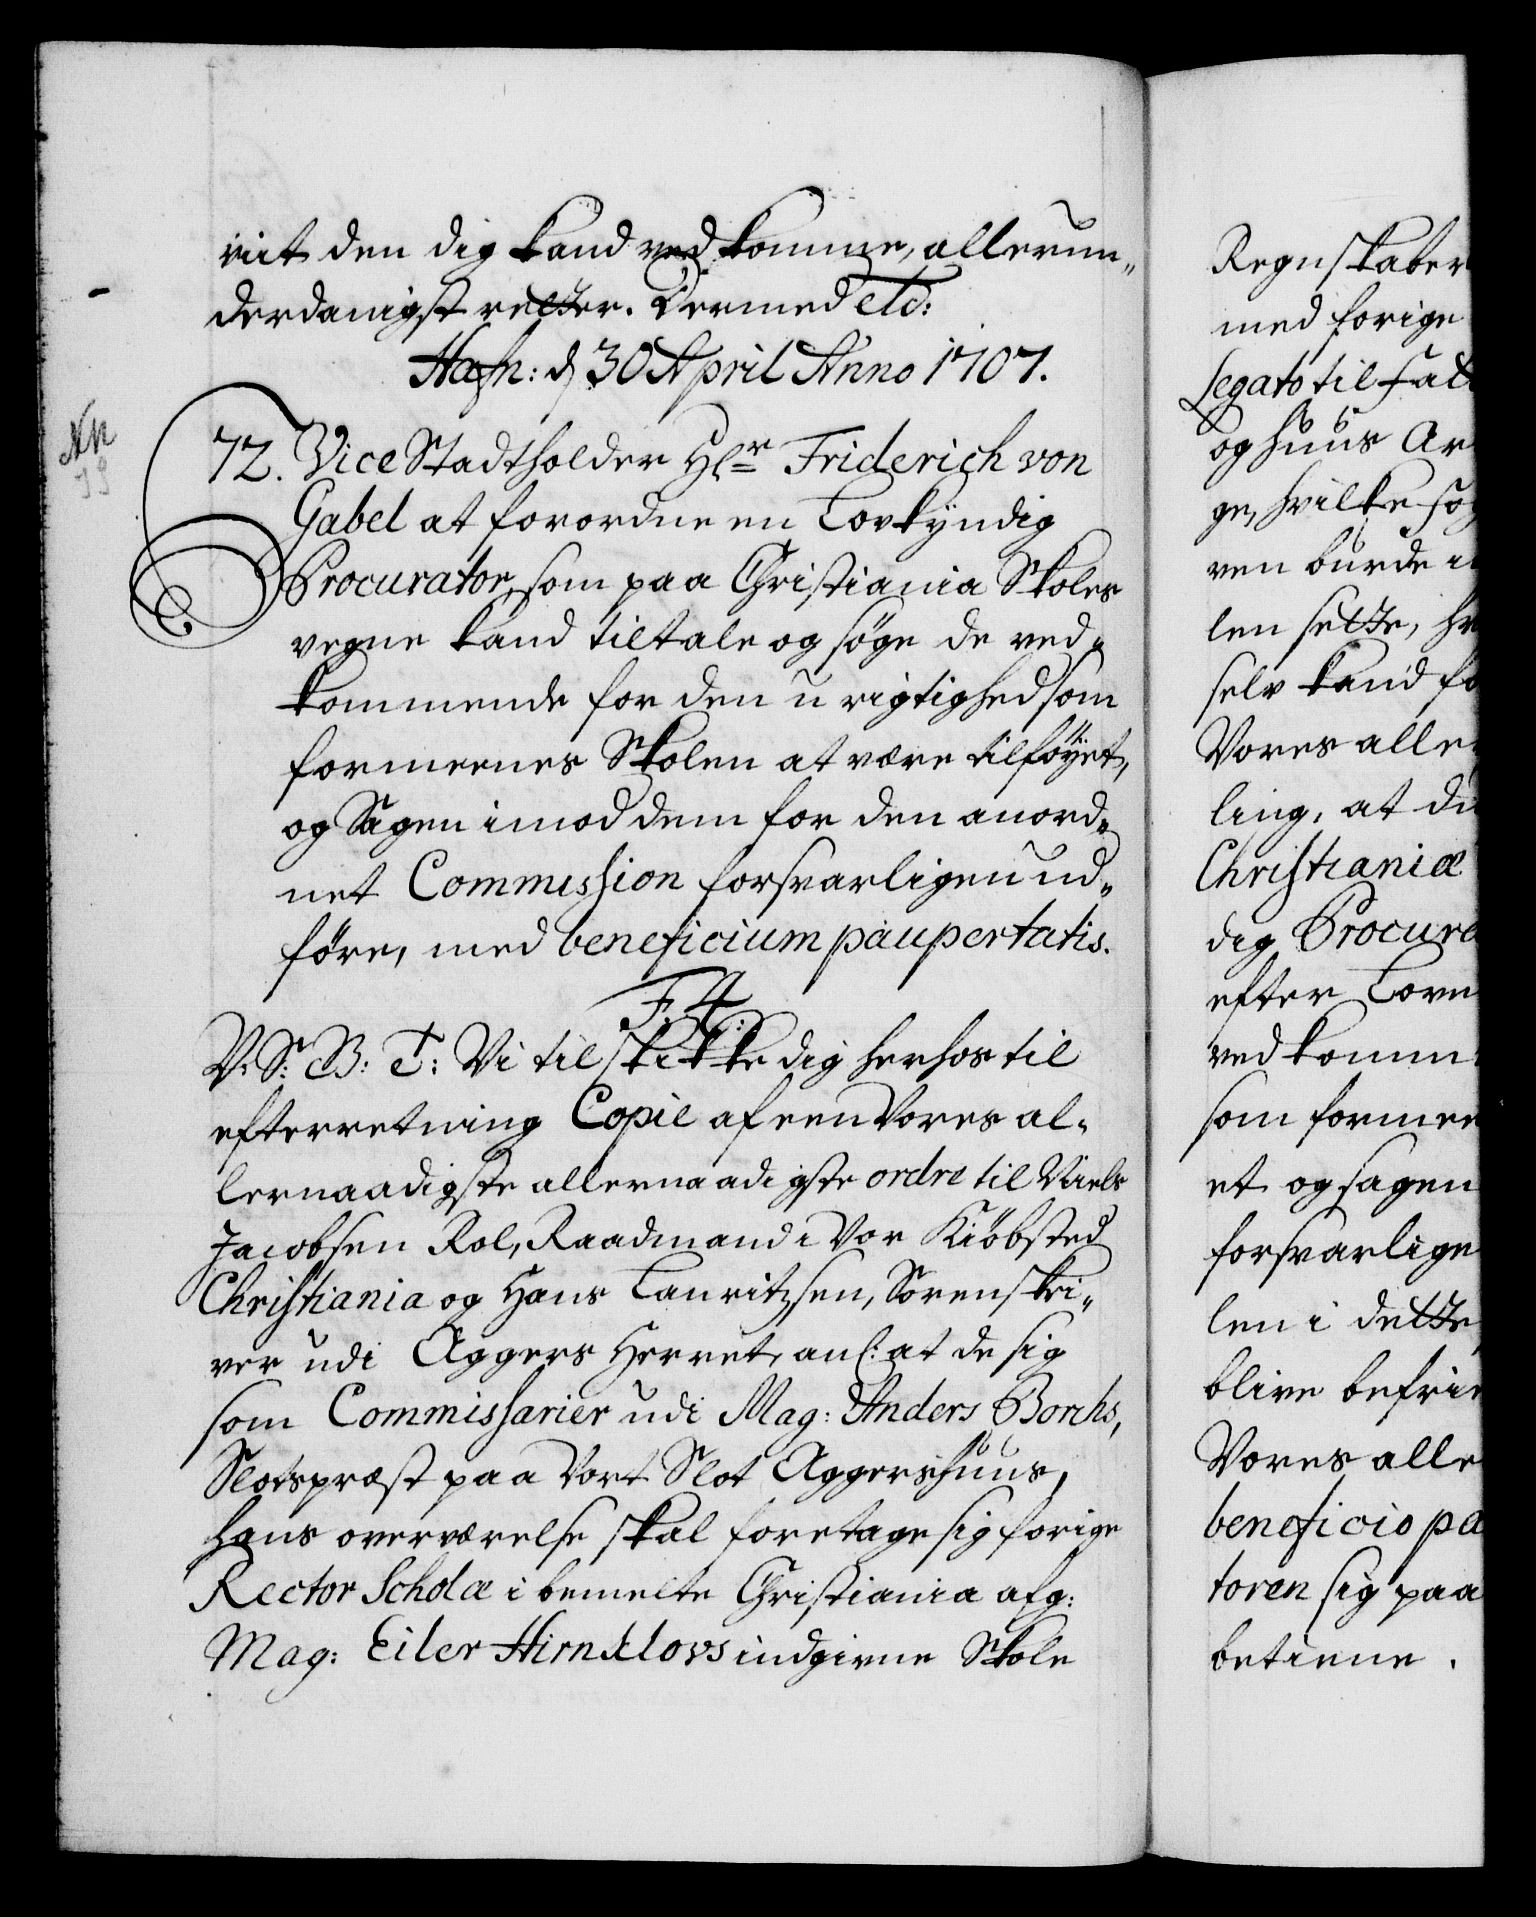 viit den dig kand vedkomme, allerun„
derdanigst retter. Dermed etc:
Hafn: d 30 April Anno 1707.
72. Vice Stadtholder Hr Friderich von
Gabel at forordne en Lovkyndig
Procurator, som paa Christiania Skoles
vegne kand tiltale og søge de ved„
kommende for den urigtighed som
formeenes Skolen at være tilføyet,
og Sagen imod dem for den anord„
net Commission forsvarligen ud„
føre, med beneficium paupertatis.
F. 4.
V: S: B: T: Vi tilskikke dig herhos til
efterretning Copie af een Vores al„
lernaadigste allernaadigste ordre til Niels
Jacobsen Rol, Raadmand i Vor Kiøbsted
Christiania og Hans Lauritzsen, Sorenskri„
ver udi Aggers Herret, anl: at de sig
som Commissarier udi Mag: Anders Borchs,
Slotspræst paa Vort Slot Aggershuus,
hans overværelse skal foretage sig forige
Rector Scholæ i bemelte Christiania afg:
Mag: Eiler Hirnklovs indgivne Skole
Regnskaber
med forige
Legato til Fatt
og huus Ar
ge, hvilke søg
ven burde i
len sette, hv
selv kand fo
Vores aller
ling, at du
Christianiæ
dig Procura
efter Loven
vedkomm
som formee
et og sagen
forsvarlige
len i dette
blive befrie
Vores alle
beneficio pa
toren sig paa
betiene.